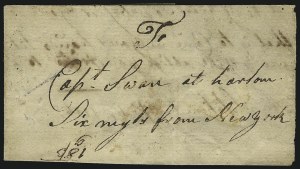 To
Capt Swan at harlom
Six myls from New york